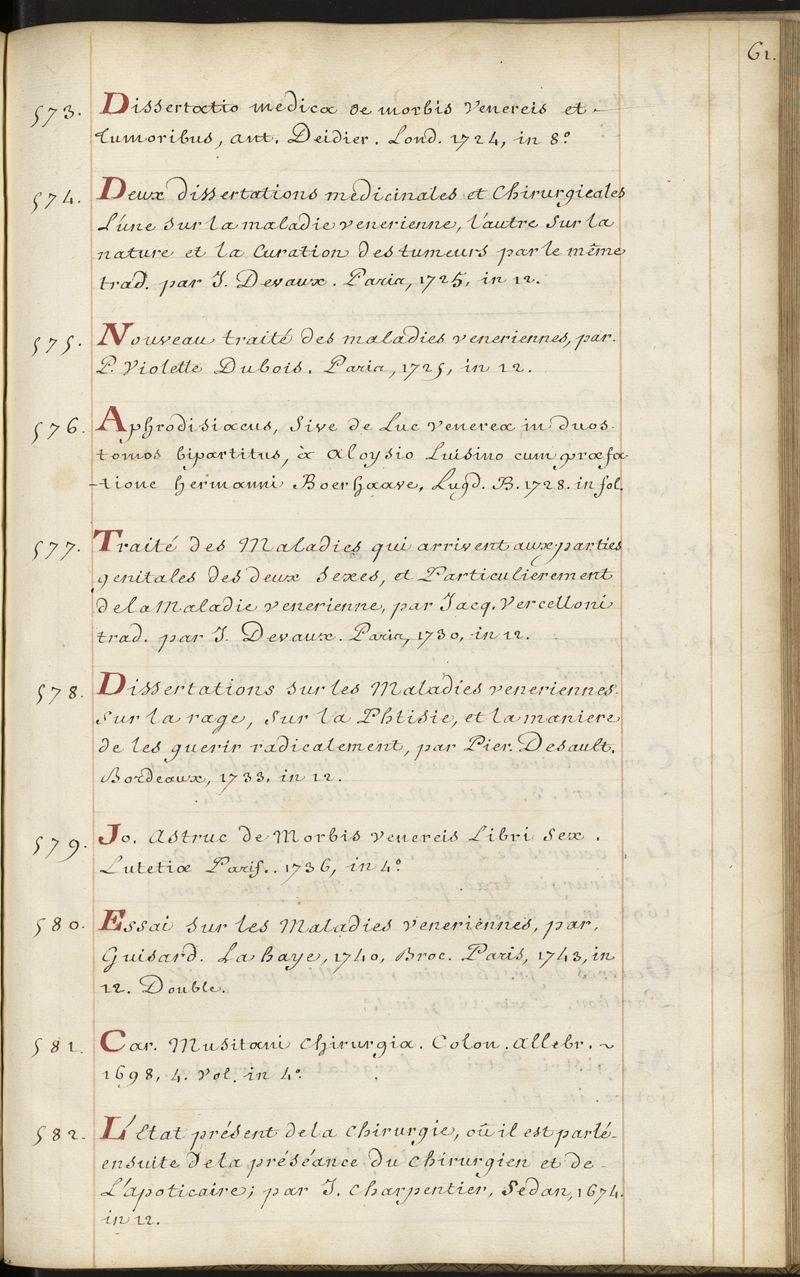 61.
573. Dissertatio medica de morbis Venereis et
tumoribus, ant. Deidier. Lond. 1724, in 8°
574. Deux dissertations medicinales et Chirurgicales
L'une sur la maladie venerienne, l'autre sur la
nature et la Curation des tumeurs par le même
trad. par J. Devaux. Paris, 1725, in 12.
575. Nouveau traité des maladies veneriennes, par.
P. Violette Dubois. Paris, 1725, in 12.
576. Aphrodisiacus, Sive de Lue Venerea in duos
tomos bipartitus, à Aloysio Luisino cum præfa-
-tione hermanni Boerhaave. Lugd. B. 1728. in fol.
577. Traité des Maladies qui arrivent aux parties
genitales des deux Sexes, et Particulierement
de la Maladie venerienne, par Jacq. Vercelloni
trad. par J. Devaux. Paris, 1730, in 12.
578. Dissertations sur les Maladies veneriennes.
Sur la rage, Sur la Phtisie, et la maniere
de les guerir radicalement, par Pier. Desault.
Bordeaux, 1733, in 12.
579. Jo. Astruc de Morbis Venereis Libri Sex.
Lutetiæ Paris.. 1736, in 4°
580. Essai sur les Maladies veneriennes, par.
Guisard. La haye, 1740, Broc. Paris, 1743, in
12. Double.
581. Car. Musitani Chirurgia. Colon. allebr. ~
1698, 4. Vol. in 4°.
582. L'État présent de la Chirurgie, où il est parlé-
ensuite de la préséance du Chirurgien et de-
L'apoticaire; par J. Charpentier, Sedan, 1674.
in 12.